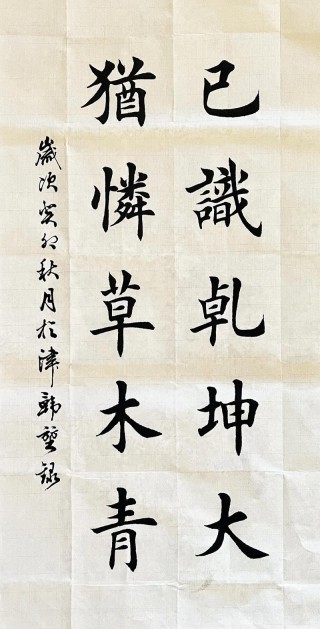 已識乾坤大
猶憐草木青
歲次癸卯秋月於津韓䥽錄